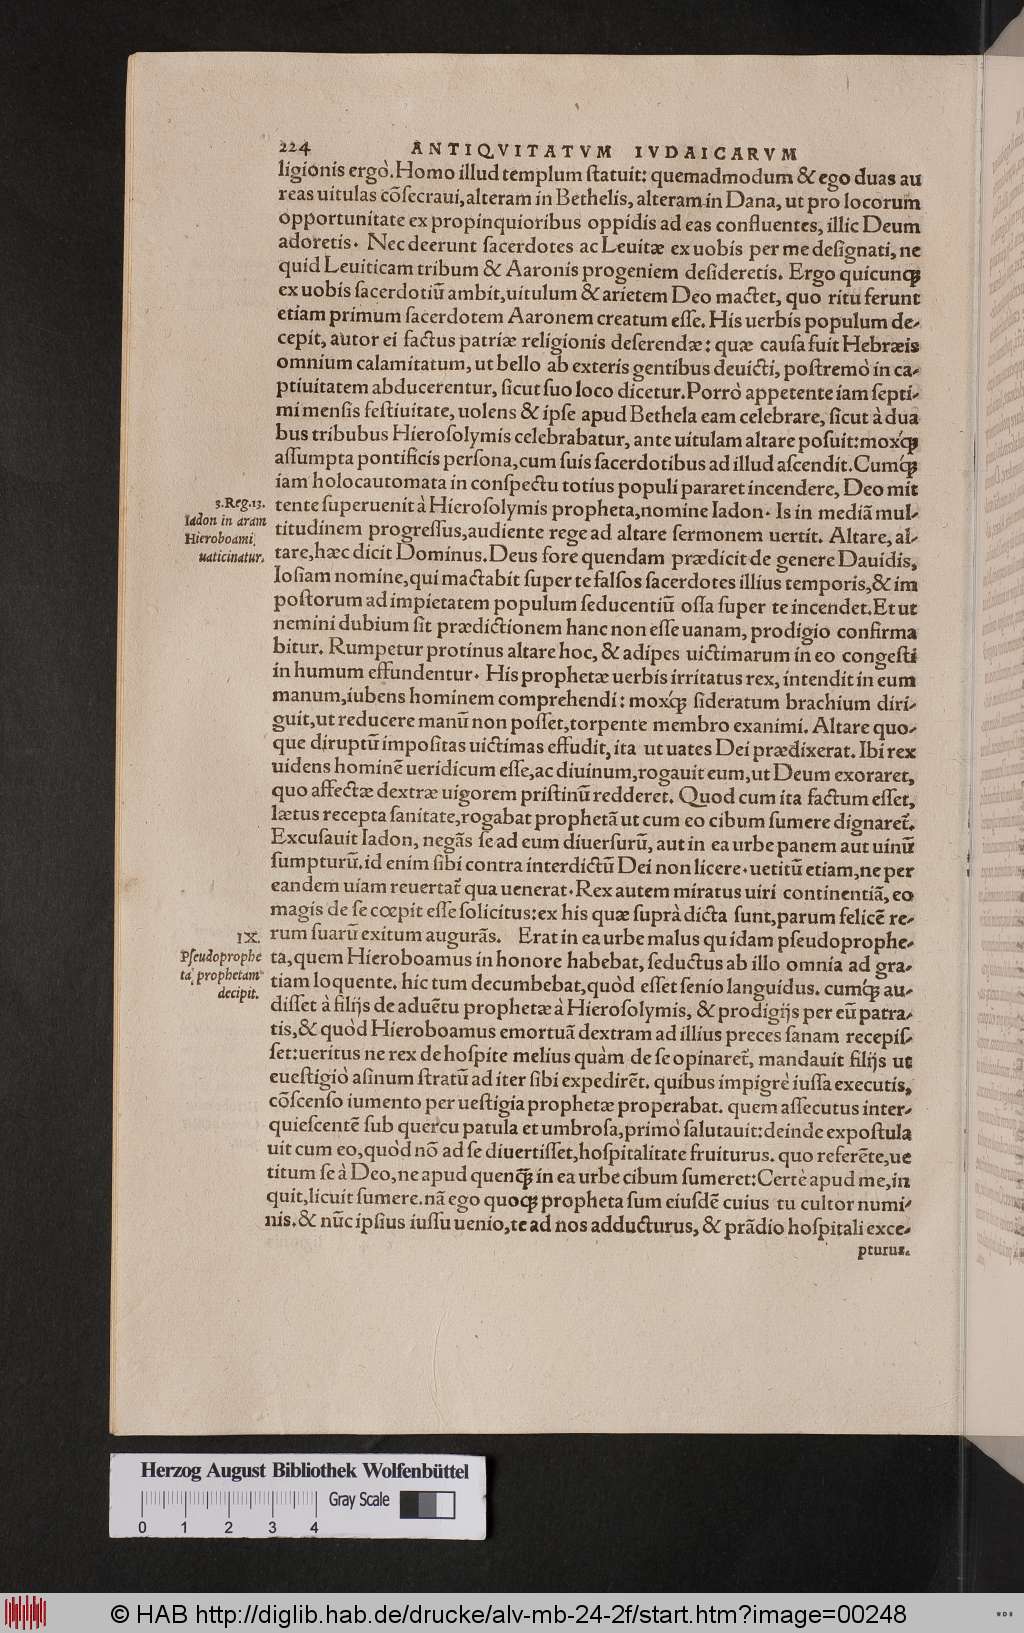 224 ANTIQVITATVM IVDAICARVM
ligionis ergò. Homo illud templum ſtatuit: quemadmodum & ego duas au
reas uitulas cõſecraui, alteram in Bethelis, alteram in Dana, ut pro locorum
opportunitate ex propinquioribus oppidis ad eas confluentes, illic Deum
adoretis. Nec deerunt ſacerdotes ac Leuitæ ex uobis per me deſignati, ne
quid Leuiticam tribum & Aaronis progeniem deſideretis. Ergo quicunqꝫ
ex uobis ſacerdotiũ ambit, uitulum & arietem Deo mactet, quo ritu ferunt
etiam primum ſacerdotem Aaronem creatum eſſe. His uerbis populum de-
cepit, autor ei factus patriæ religionis deſerendæ: quæ cauſa fuit Hebræis
omnium calamitatum, ut bello ab exteris gentibus deuicti, poſtremò in ca-
ptiuitatem abducerentur, ſicut ſuo loco dicetur. Porrò appetente iam ſepti-
mi menſis feſtiuitate, uolens & ipſe apud Bethela eam celebrare, ſicut à dua
bus tribubus Hieroſolymis celebrabatur, ante uitulam altare poſuit: moxq́ꝫ
aſſumpta pontificis perſona, cum ſuis ſacerdotibus ad illud aſcendit. Cumq́ꝫ
iam holocautomata in conſpectu totius populi pararet incendere, Deo mit
tente ſuperuenit à Hieroſolymis propheta, nomine Iadon. Is in mediã mul-
titudinem progreſſus, audiente rege ad altare ſermonem uertit. Altare, al-
tare, hæc dicit Dominus. Deus fore quendam prædicit de genere Dauidis,
Ioſiam nomine, qui mactabit ſuper te falſos ſacerdotes illius temporis, & im
poſtorum ad impietatem populum ſeducentiũ oſſa ſuper te incendet. Et ut
nemini dubium ſit prædictionem hanc non eſſe uanam, prodigio confirma
bitur. Rumpetur protinus altare hoc, & adipes uictimarum in eo congeſti
in humum effundentur. His prophetæ uerbis irritatus rex, intendit in eum
manum, iubens hominem comprehendi: moxq́ꝫ ſideratum brachium diri-
guit, ut reducere manũ non poſſet, torpente membro exanimi. Altare quo-
que diruptũ impoſitas uictimas effudit, ita ut uates Dei prædixerat. Ibi rex
uidens hominẽ ueridicum eſſe, ac diuinum, rogauit eum, ut Deum exoraret,
quo affectæ dextræ uigorem priſtinũ redderet. Quod cum ita factum eſſet,
lætus recepta ſanitate, rogabat prophetã ut cum eo cibum ſumere dignaret̃.
Excuſauit Iadon, negãs ſe ad eum diuerſurũ, aut in ea urbe panem aut uinũ
ſumpturũ. id enim ſibi contra interdictũ Dei non licere. uetitũ etiam, ne per
eandem uiam reuertat̃ qua uenerat. Rex autem miratus uiri continentiã, eo
magis de ſe cœpit eſſe ſolicitus: ex his quæ ſuprà dicta ſunt, parum felicẽ re-
rum ſuarũ exitum augurãs. Erat in ea urbe malus quidam pſeudoprophe-
ta, quem Hieroboamus in honore habebat, ſeductus ab illo omnia ad gra-
tiam loquente. hic tum decumbebat, quòd eſſet ſenio languidus. cumq́ꝫ au-
diſſet à filijs de aduẽtu prophetæ à Hieroſolymis, & prodigijs per eũ patra-
tis, & quòd Hieroboamus emortuã dextram ad illius preces ſanam recepiſ-
ſet: ueritus ne rex de hoſpite melius quàm de ſe opinaret̃, mandauit filijs ut
eueſtigiò aſinum ſtratũ ad iter ſibi expedirẽt. quibus impigrè iuſſa executis,
cõſcenſo iumento per ueſtigia prophetæ properabat. quem aſſecutus inter-
quieſcentẽ ſub quercu patula et umbroſa, primò ſalutauit: deinde expoſtula
uit cum eo, quòd nõ ad ſe diuertiſſet, hoſpitalitate fruiturus. quo referẽte, ue
titum ſe à Deo, ne apud quenqꝫ̃ in ea urbe cibum ſumeret: Certè apud me, in
quit, licuit ſumere. nã ego quoqꝫ propheta ſum eiuſdẽ cuius tu cultor numi-
nis. & nũc ipſius iuſſu uenio, te ad nos adducturus, & prãdio hoſpitali exce-
pturus.
3. Reg. 13.
Iadon in aram
Hieroboami
uaticinatur.
IX.
Pſeudoprophe
ta prophetam
decipit.
Herzog August Bibliothek Wolfenbüttel
Gray Scale
0 1 2 3 4
© HAB http://diglib.hab.de/drucke/alv-mb-24-2f/start.htm?image=00248